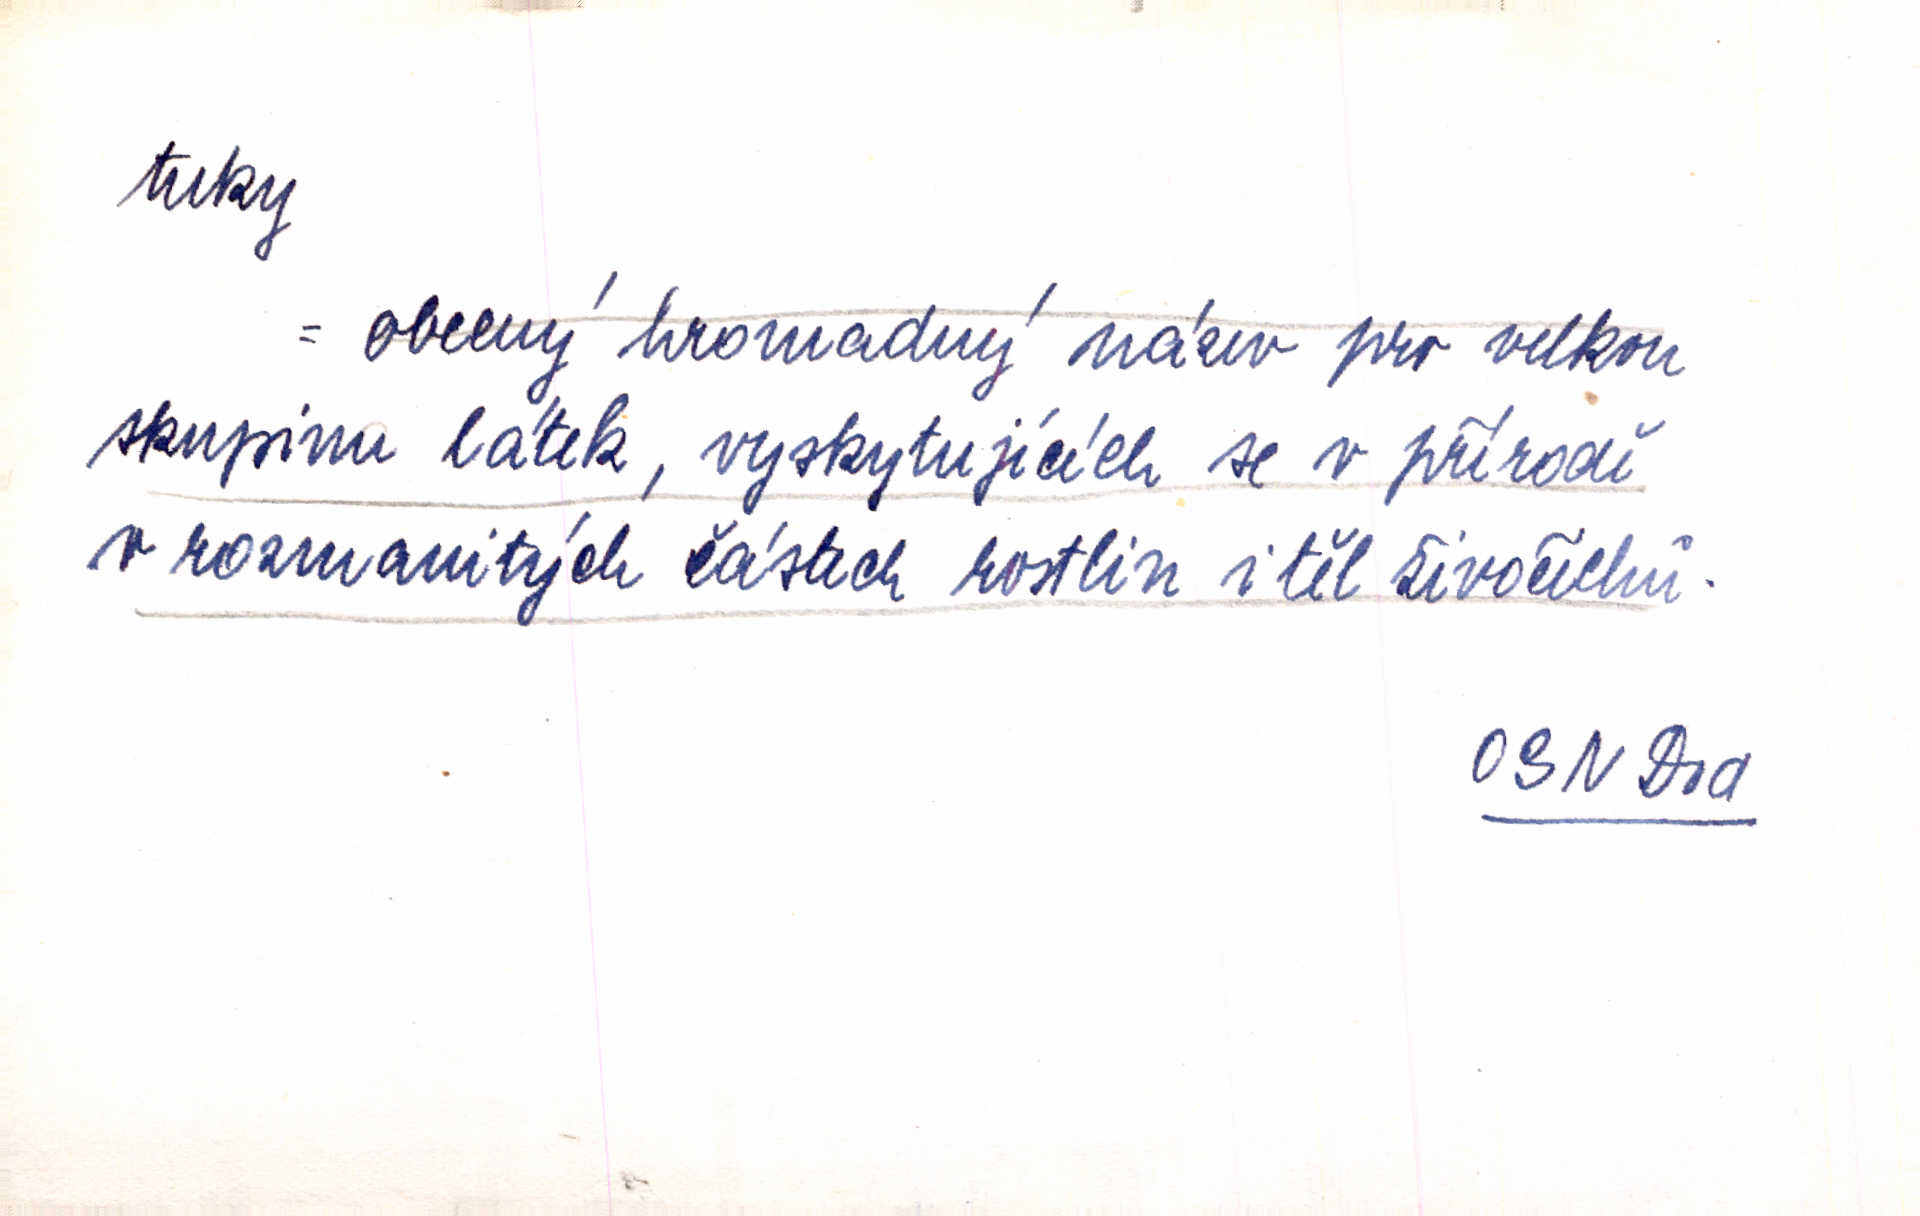 tuky
= obecný hromadný název pro velkou
skupinu látek, vyskytujících se v přírodě
v rozmanitých částech rostlin i těl živočichů.
OSN Dod